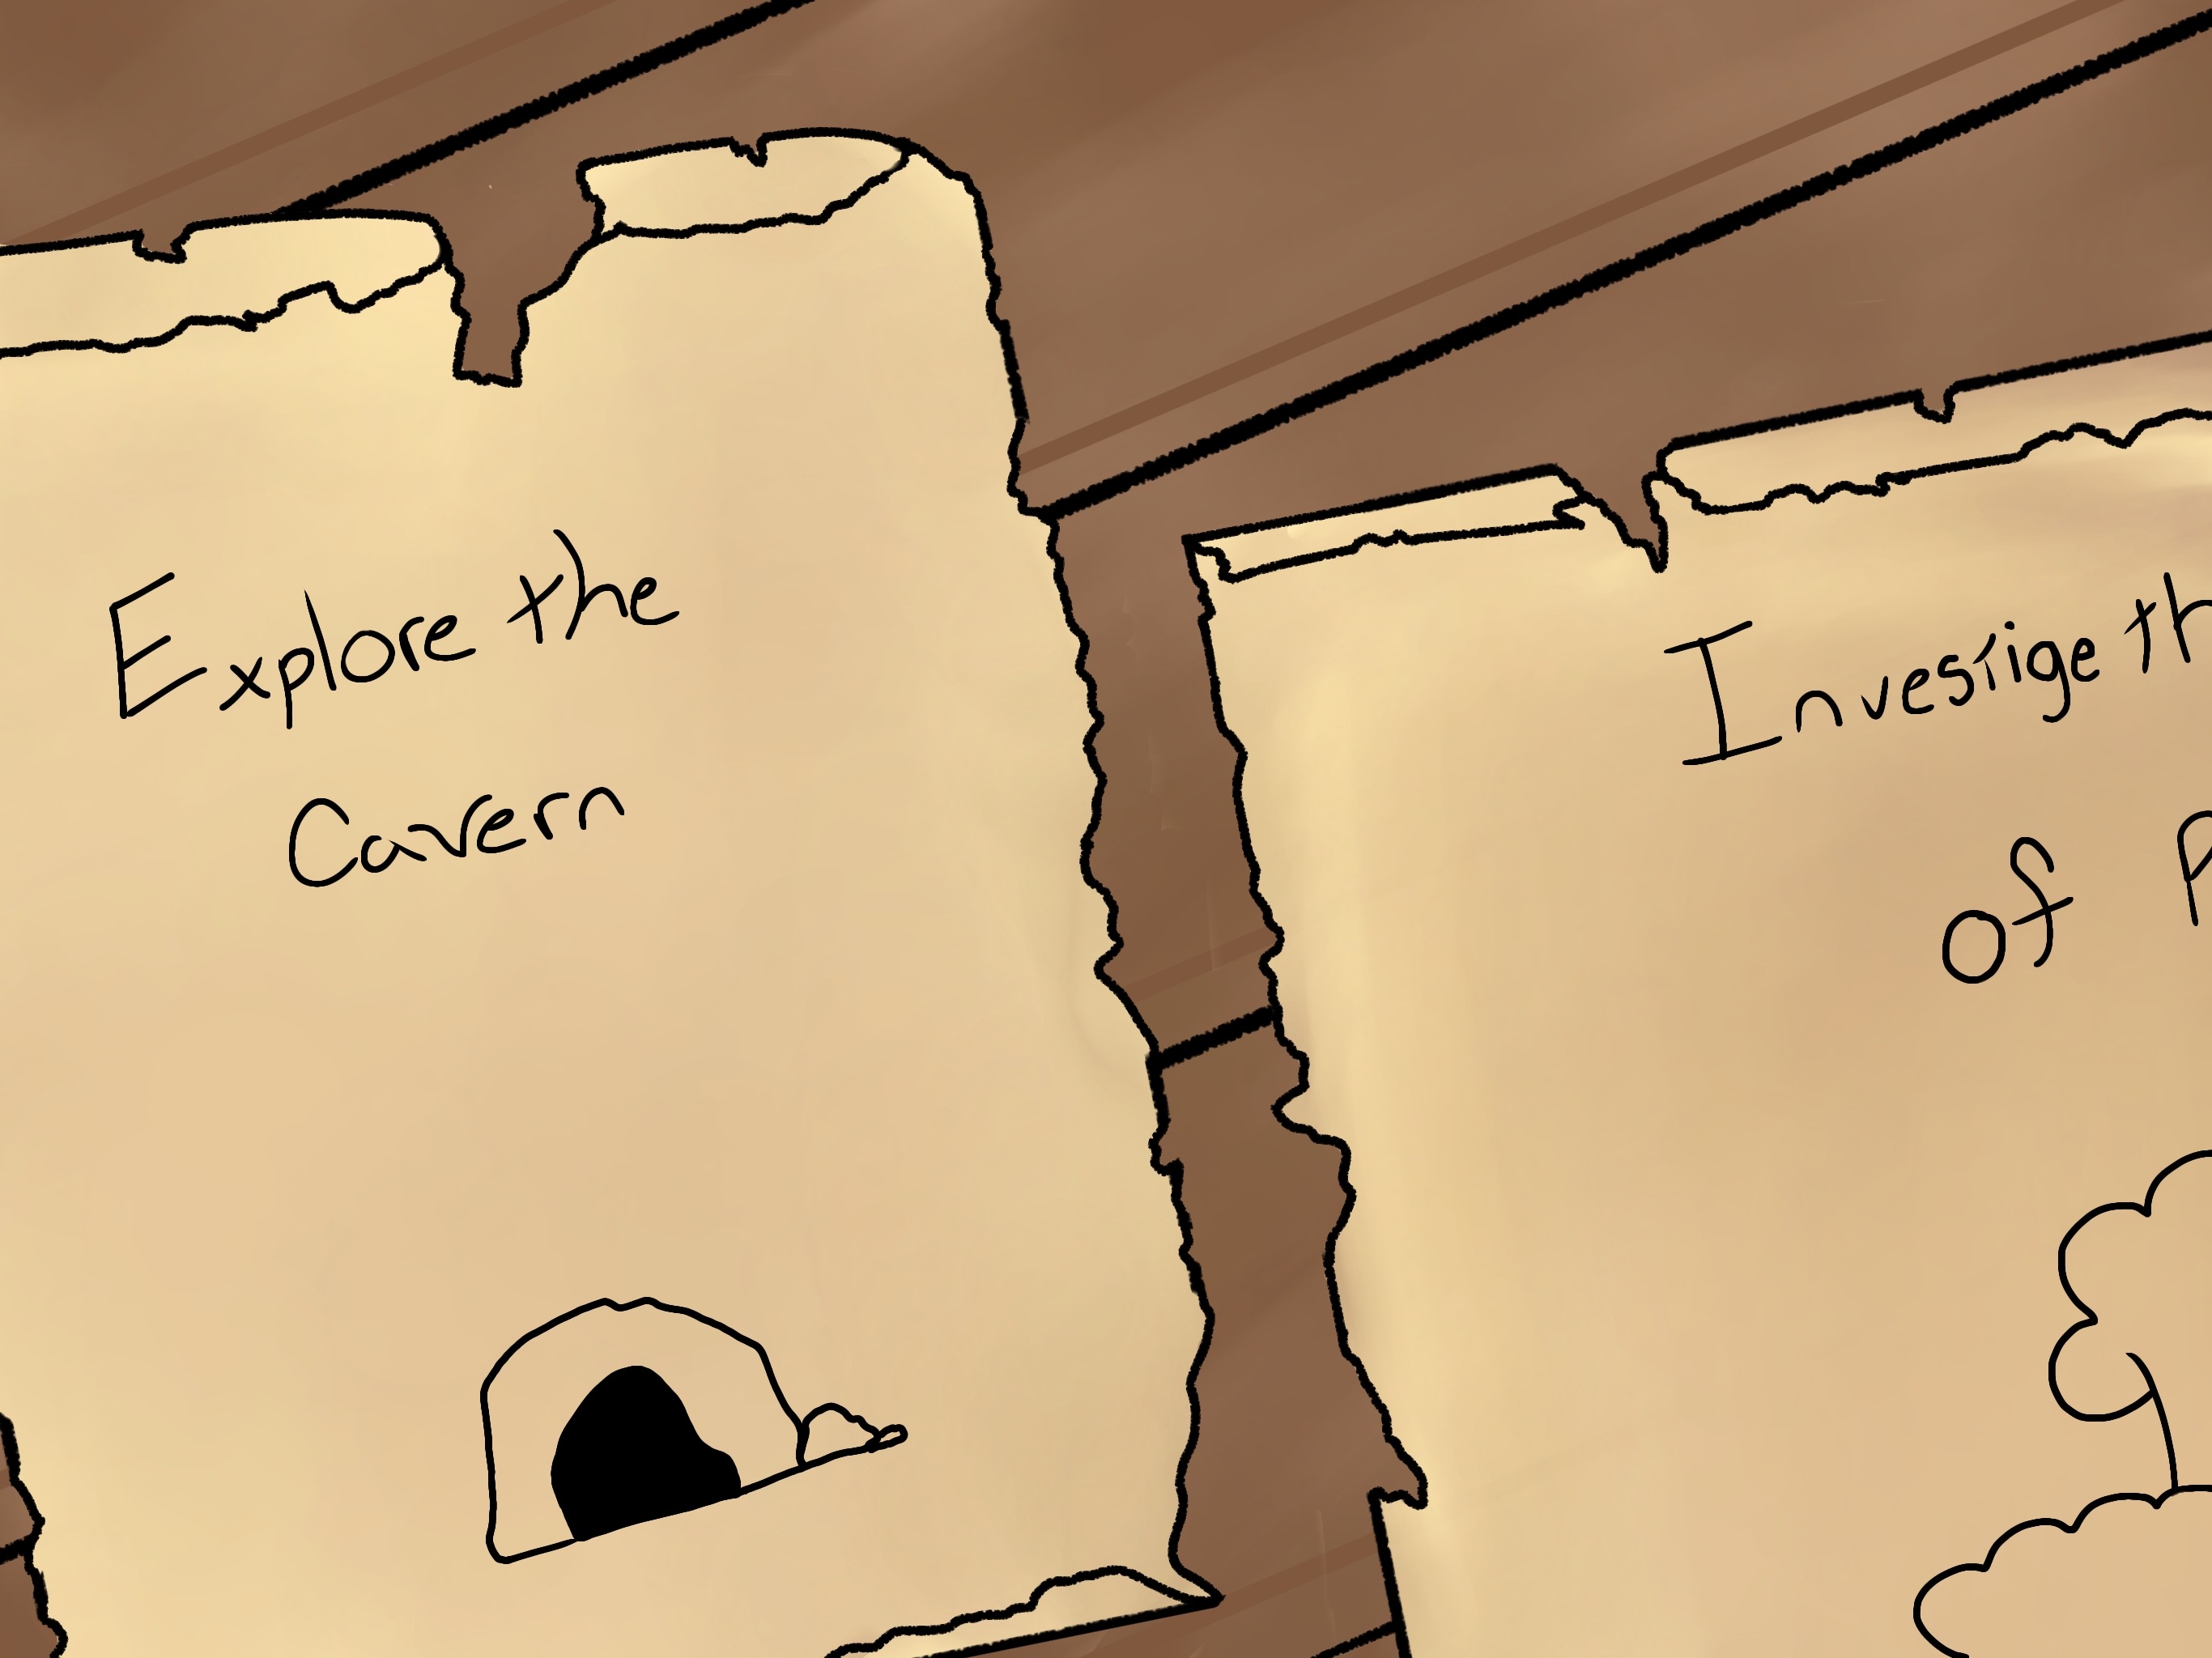 Explore the
Cavern
Invesiige th
of